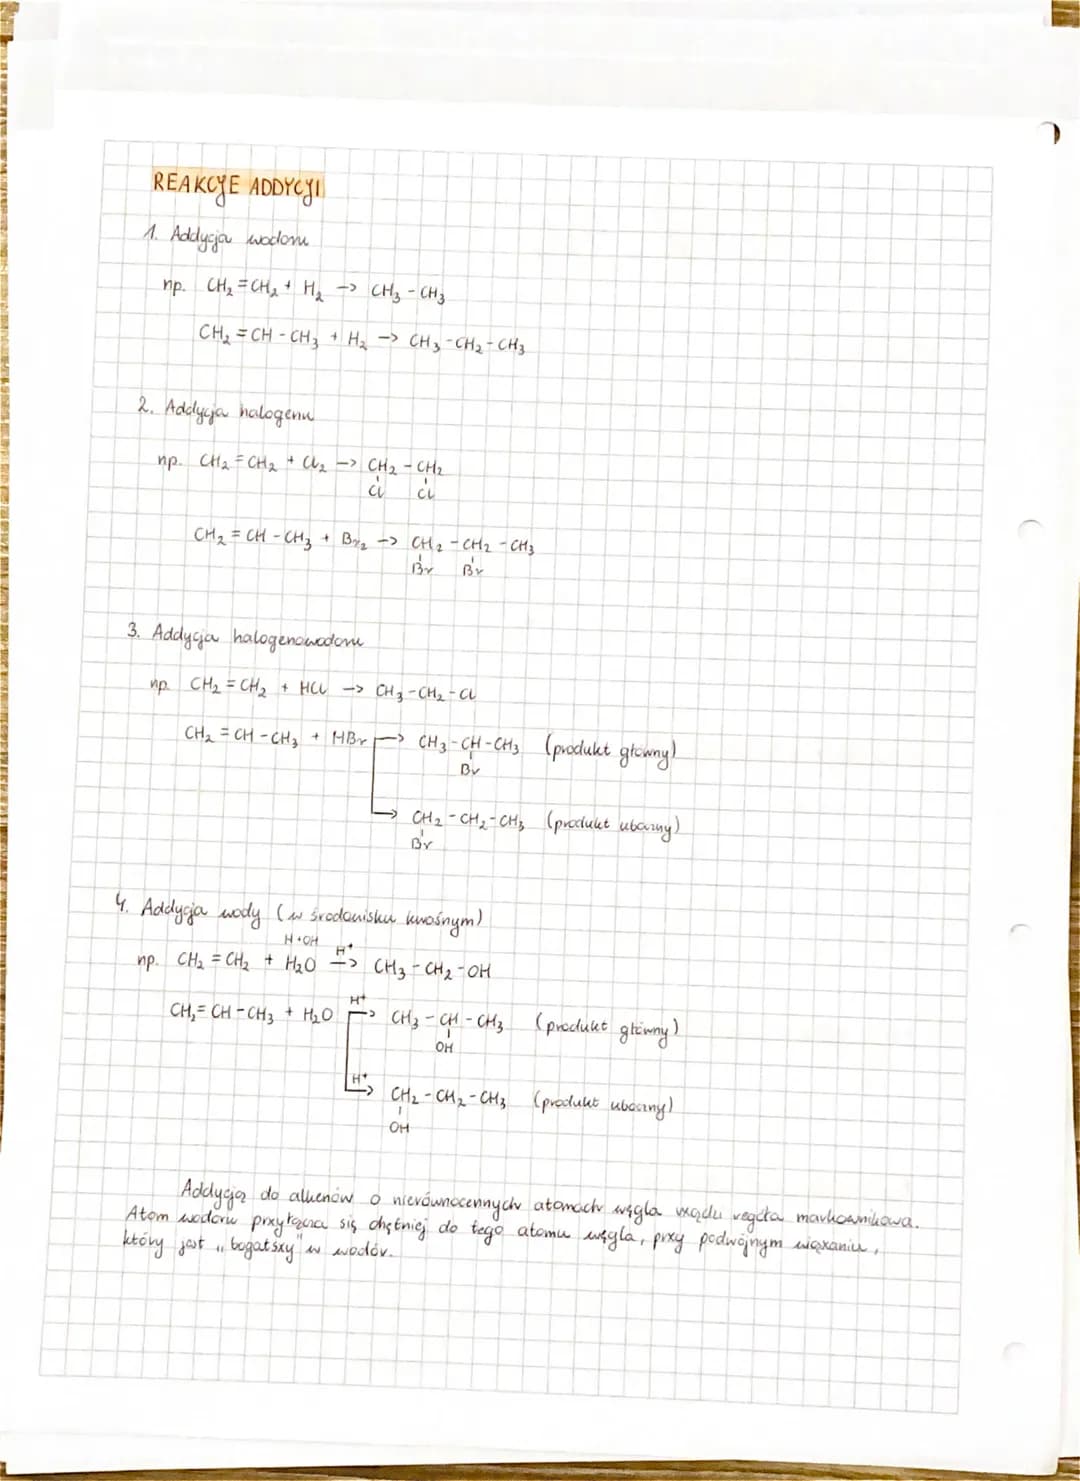 REAKCJE ADDYCJI
1. Addycja wodoru
np. CH₂=CH₂ + H₂ -> CH₃-CH₃
CH₂=CH-CH₃ + H₂ -> CH₃-CH₂-CH₃
2. Addycja halogenu
np. CH₂=CH₂ + Cl₂ -> CH₂-CH₂
Cl Cl
CH₂=CH-CH₃ + Br₂ -> CH₂-CH₂-CH₃
Br Br
3. Addycja halogenowodoru
np. CH₂=CH₂ + HCl -> CH₃-CH₂-Cl
CH₂=CH-CH₃ + HBr -> CH₃-CH-CH₃ (produkt główny)
Br
-> CH₂-CH₂-CH₃ (produkt uboczny)
Br
4. Addycja wody (w środowisku kwaśnym)
H+OH
np. CH₂=CH₂ + H₂O H⁺ -> CH₃-CH₂-OH
CH₂=CH-CH₃ + H₂O H⁺ -> CH₃-CH-CH₃ (produkt główny)
OH
H⁺ -> CH₂-CH₂-CH₃ (produkt uboczny)
OH
Addycją do alkenów o nierównocennych atomach węgla rządzi reguła markownikowa.
Atom wodoru przyłącza się chętniej do tego atomu węgla, przy podwójnym wiązaniu,
który jest „bogatszy" w wodór.